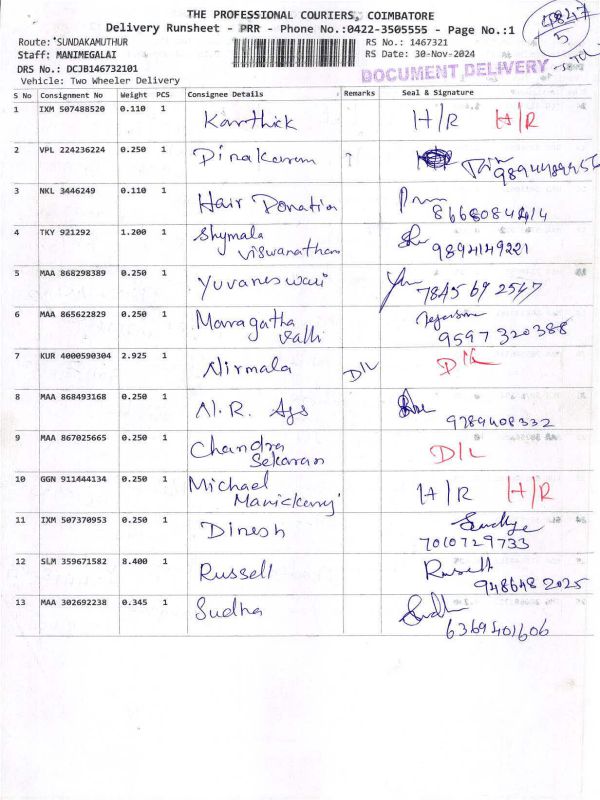 THE PROFESSIONAL COURIERS, COIMBATORE
Delivery Runsheet - PRR - Phone No.:0422-3505555 - Page No.:1
Route: SUNDAKAMUTHUR
RS No.: 1467321
Staff: MANIMEGALAI
RS Date: 30-Nov-2024
DRS No.: DCJB146732101
DOCUMENT DELIVERY
Vehicle: Two Wheeler Delivery
S No Consignment No Weight PCS Consignee Details Remarks Seal & Signature
1 IXM 507488520 0.110 1 Karthick H/R H/R
2 VPL 224236224 0.250 1 Dinakaran
3 NKL 3446249 0.110 1 Hair Donation 8668084414
4 TKY 921292 1.200 1 Shymala
Viswanathan 9894149221
5 MAA 868298389 0.250 1 Yuvaneswari 7845692547
6 MAA 865622829 0.250 1 Maragatha
Valli 9597320388
7 KUR 4000590304 2.925 1 Nirmala D/L D/L
8 MAA 868493168 0.250 1 N.R. Ags 9789408332
9 MAA 867025665 0.250 1 Chandra
Sekaran D/L
10 GGN 911444134 0.250 1 Michael
Manickeny H/R H/R
11 IXM 507370953 0.250 1 Dinesh
7010729733
12 SLM 359671582 8.400 1 Russell Russell
948648 2025
13 MAA 302692238 0.345 1 Sudha Sudh
6369401606